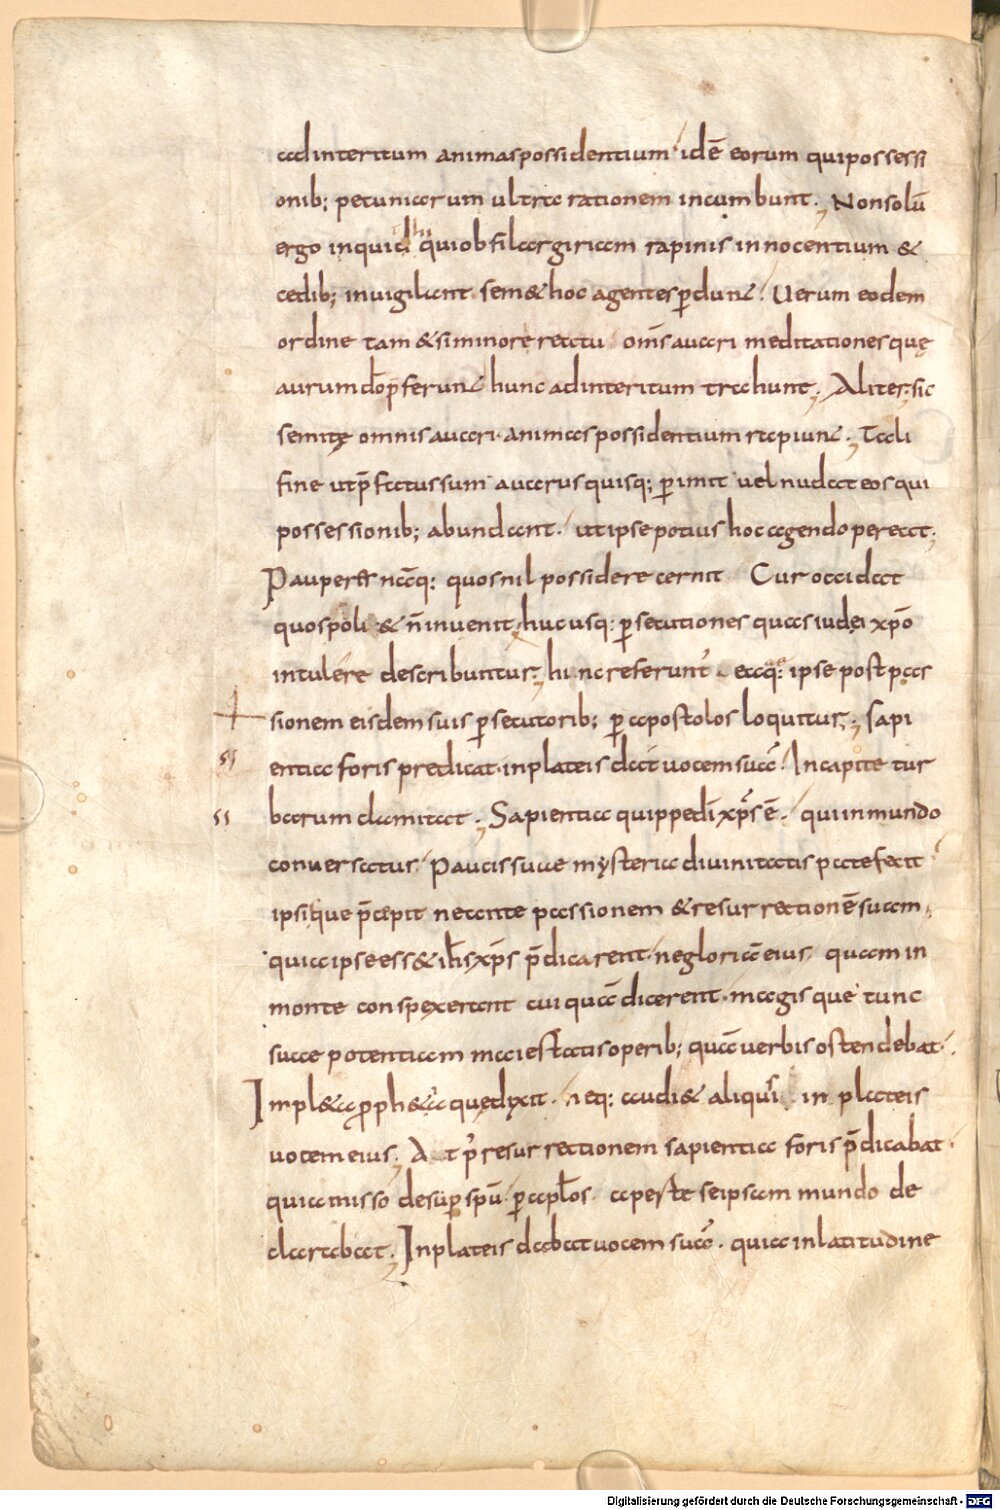 ad interitum animas possidentium idē eorum qui possessi
onib; pecuniarum ultra rationem incumbunt. Non solū
ergo inquid hi qui ob filargiriam rapinis innocentium &
cedib; inuigilant sem& hoc agentes ꝑdunt. Uerum eodem
ordine tam & si minore reatu om̄s auari meditationes quę
aurum dō p̄ferunt hunc ad interitum trahunt. Aliter. sic
semitę omnis auari animas possidentium rapiunt. Tali
fine ut p̄fatus sum auarus quisq; ꝑimit uel nudat eos qui
possessionib; abundant. ut ipse potius hoc agendo pereat.
Pauperes nāq: quos nil possidere cernit Cur occidat
quos poli& ñ inuenit. huc usq: ꝑsecutiones quas iudei xp̄o
intulere describuntur. hinc referunt. eaq: ipse post pas
sionem eisdem suis ꝑsecutorib; ꝑ apostolos loquitur. Sapi
entia foris predicat. in plateis dat uocem suā. In capite tur
barum clamitat. Sapientia quippe dī xp̄s ē. qui in mundo
conuersatus. Paucis suae mysteria diuinitatis patefecit
ipsique p̄cepit ne ante passionem & resurrectionē suam.
quia ipse ess& ih̄s xp̄s p̄dicarent. ne gloriā eius quam in
monte conspexerant cuiquā dicerent. magis que tunc
suae potentiam maiestatis operib; quā uerbis ostendebat.
Impl& a proph&a quę dixit. neq: audi& aliquis in plateis
uocem eius. At p̄ resurrectionem sapientia foris p̄dicabat
quia misso desuꝑ sp̄u ꝑ apl̄os aperte se ipsam mundo de
clarabat. In plateis dabat uocem suā. quia in latitudine
Digitalisierung gefördert durch die Deutsche Forschungsgemeinschaft - DFG